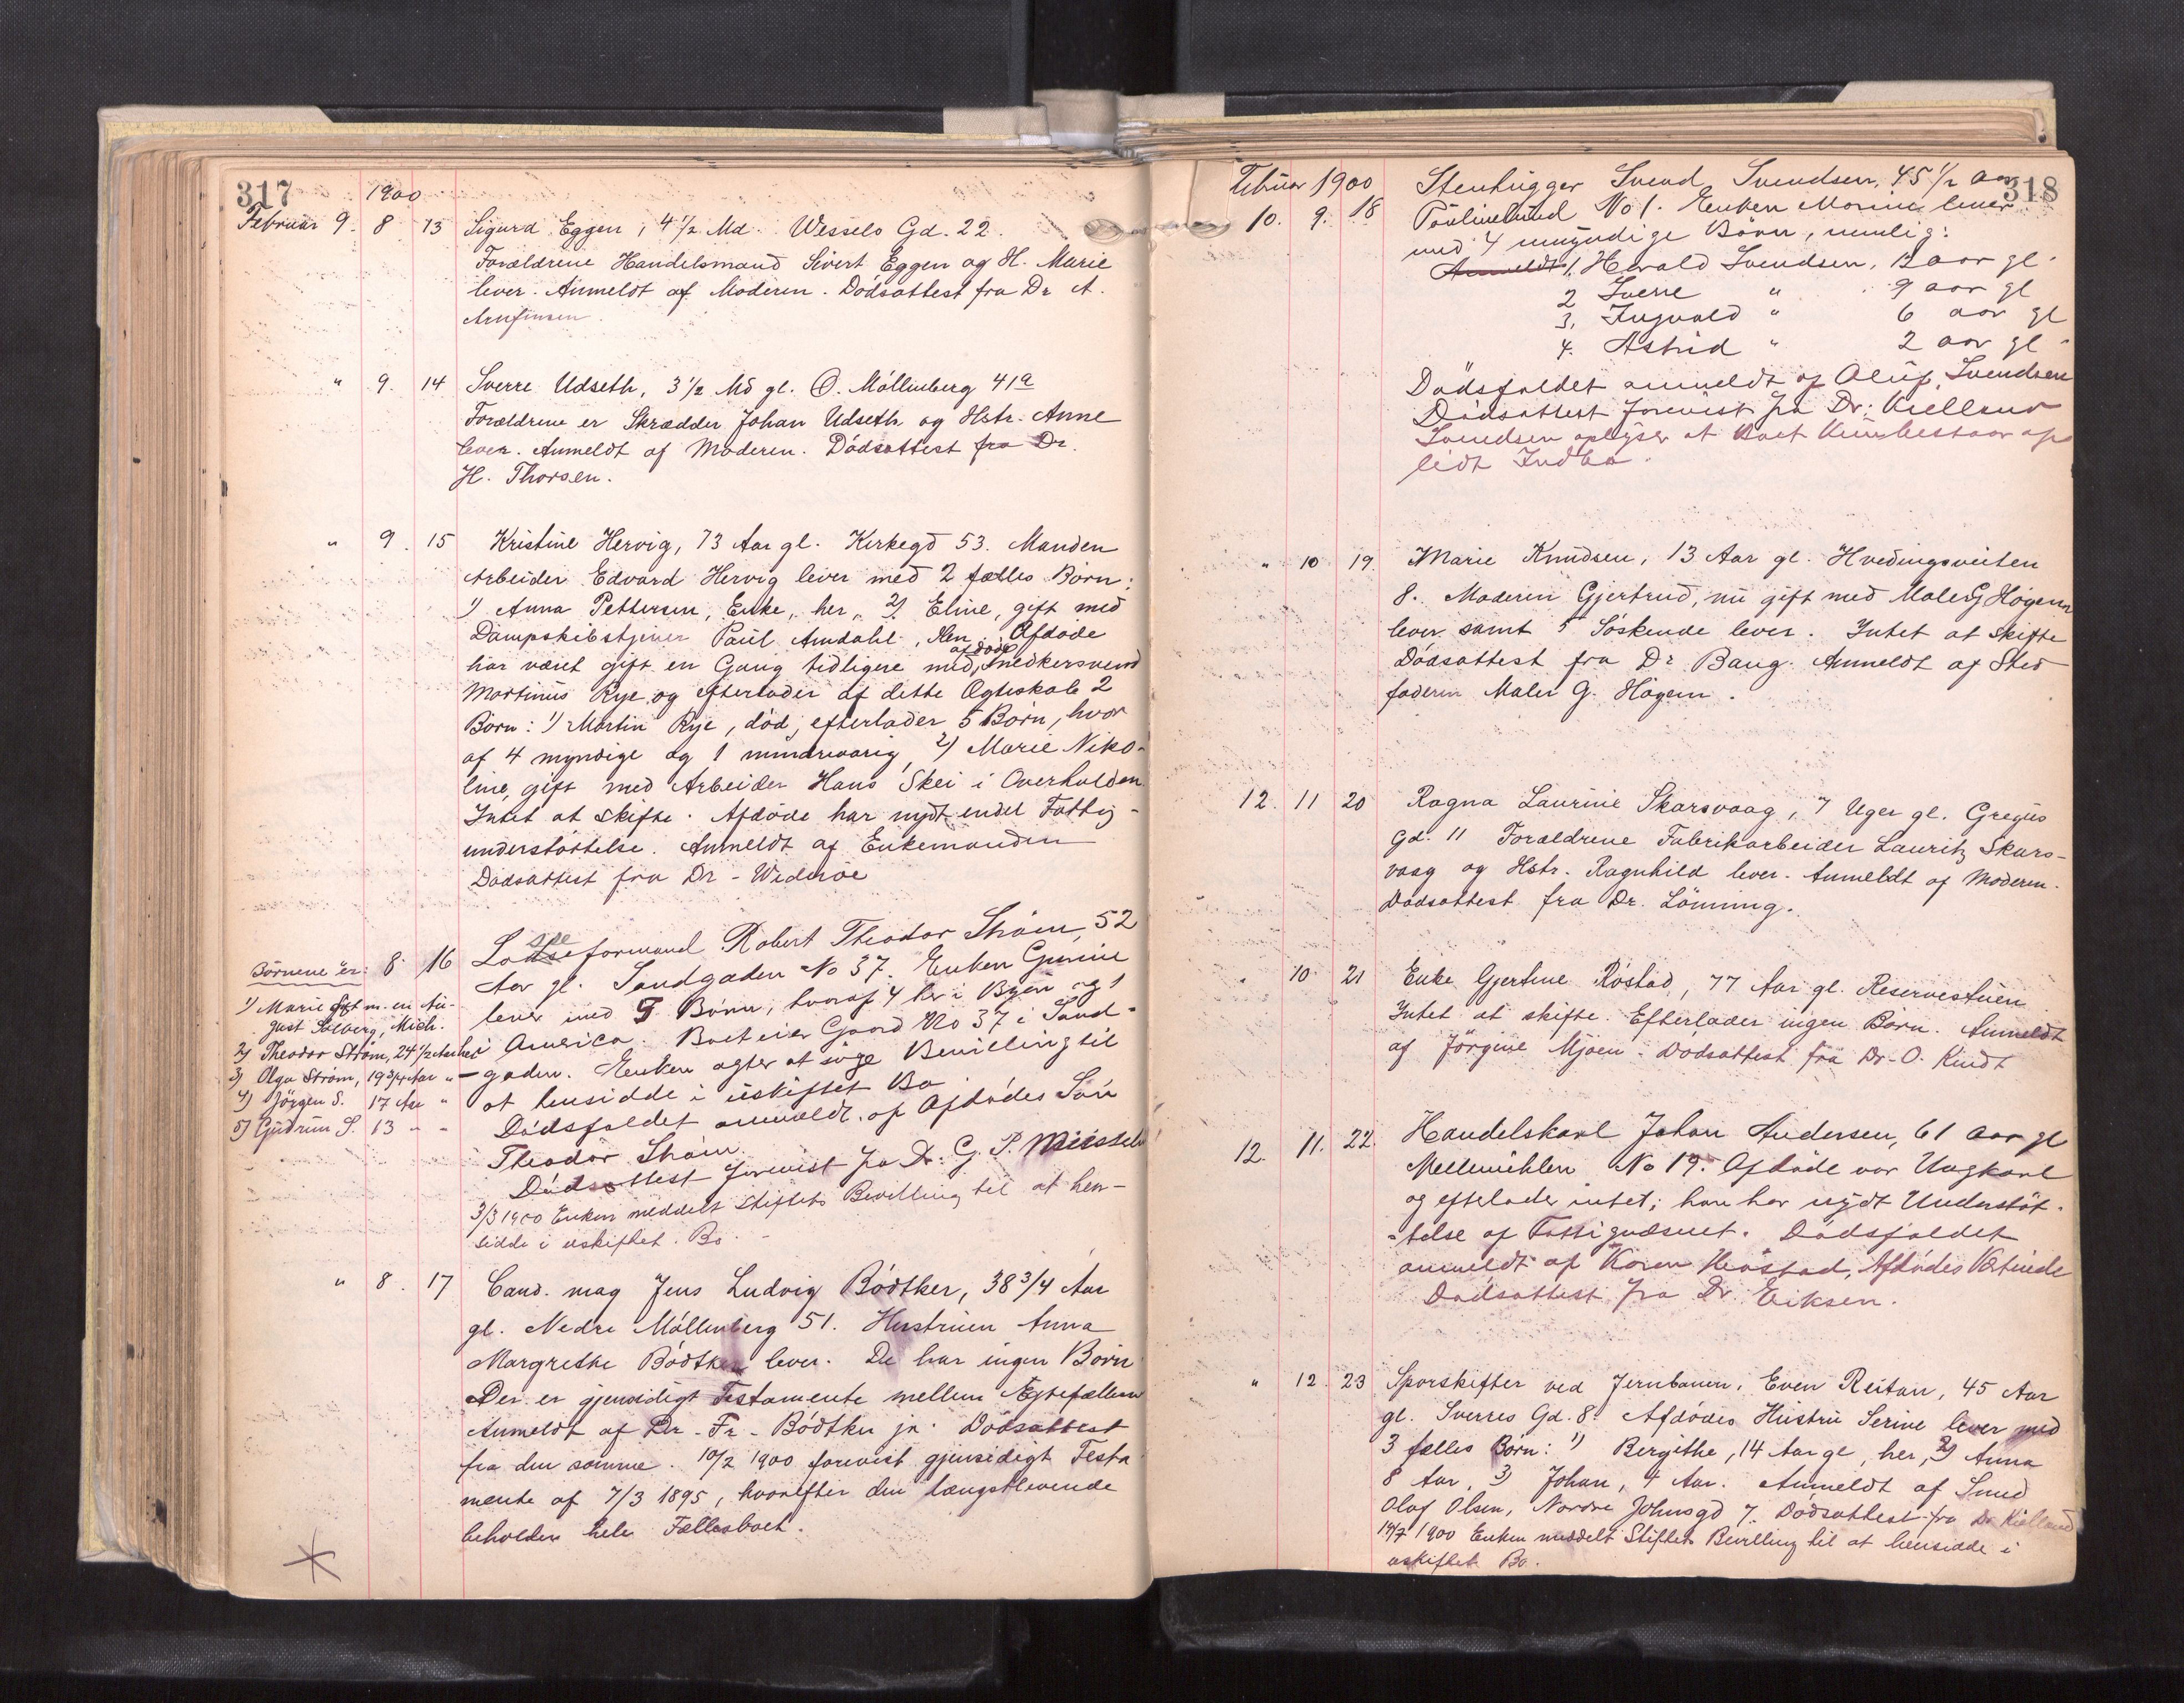 317
1900
Februar 9. 8 13 Sigurd Eggen, 4 1/2 Md. Wessels Gd. 22.
Forældrene Handelsmand Sivert Eggen og H. Marie
lever. Anmeldt af Moderen. Dödsattest fra Dr A.
Arnfinsen.
" 9. 14 Sverre Udseth, 3 1/2 Md gl. Ö. Möllenberg 41a
Forældrene er Skrædder Johan Udseth og Hstr. Anne
lever. Anmeldt af Moderen. Dödsattest fra Dr.
H. Thorsen.
" 9. 15 Kristine Hervig, 73 Aar gl. Kirkegd 53. Manden
Arbeider Edvard Hervig lever med 2 fælles Börn:
1) Anna Pettersen, Enke, her, 2) Eline, gift med
Dampskibstjener Paul Amdahl. Den Afdöde
har været gift en Gang tidligere med afdöde Snedkersvend
Martinus Rye og efterlader af dette Ægteskab 2
Börn: 1) Martin Rye, död, efterlader 5 Börn, hvor
af 4 myndige og 1 mindreaarig, 2) Marie Niko-
line, gift med Arbeider Hans Skei i Overhalden.
Intet at skifte. Afdöde har nydt endel Fattig-
understöttelse. Anmeldt af Enkemanden
Dödsattest fra Dr. Wideröe
8. 16 Losseformand Robert Theodor Ström, 52
Aar gl. Sandgaden No 37. Enken Gurine
lever med 5 Börn, hvoraf 4 her i Byen og 1
i America. Boet eier Gaard No 37 i Sand-
gaden. Enken agter at söge Bevilling til
at hensidde i uskiftet Bo.
Dödsfaldet anmeldt af Afdödes Sön
Theodor Ström
Dödsattest forevist fra Dr. G. P.
3/3 1900 Enken meddelt Stiftets Bevilling til at hen-
sidde i uskiftet Bo.
Börnene er:
1) Marie gift m. en Au-
gust Solberg, Mich.
2) Theodor Ström, 24 1/2 Aar her
3) Olga Ström, 19 3/4 Aar "
4) Jörgen S. 17 Aar "
5) Gudrun S. 13 " "
" 8. 17 Cand. mag Jens Ludvig Bödtker, 38 3/4 Aar
gl. Nedre Möllenberg 51. Hustruen Anna
Margrethe Bödtker lever. De har ingen Börn
Der er gjensidigt Testamente mellem Ægtefællerne
Anmeldt af Dr. Fr. Bödtker jr. Dödsattest
fra den samme. 10/2 1900 forevist gjensidigt Testa
mente af 7/3 1895, hvorefter den længstlevende
beholder hele Fællesboet.
318
Februar 1900
10. 9. 18 Stenhugger Svend Svendsen, 45 1/2 Aar
Paulinelund No 1. Enken lever
med 4 umyndige Börn, nemlig:
1. Harald Svendsen, 12 aar gl.
2 Sverre " 9 aar gl
3. Ingvald " 6 aar gl
4. Astrid " 2 aar gl
Dödsfaldet anmeldt af Oluf Svendsen
Dödsattest forevist fra Dr. Kielland
Svendsen oplyser at Boet kun bestaar af
lidt Indbo.
" 10 19. Marie Knudsen, 13 Aar gl. Hvedingsveiten
8. Moderen Gjertrud, nu gift med Maler G Högern
lever samt 5 Söskende lever. Intet at skifte
Dödsattest fra Dr Bang. Anmeldt af Sted
faderen Maler G. Högern.
12. 11 20 Ragna Laurine Skarsvaag, 7 Uger gl. Gregus
Gd. 11 Forældrene Fabrikarbeider Lauritz Skars-
vaag og Hstr. Ragnhild lever. Anmeldt af Moderen.
Dödsattest fra Dr. Lönning.
" 10. 21 Enke Gjertine Röstad, 77 Aar gl. Reservestuen
Intet at skifte. Efterlader ingen Börn. Anmeldt
af Jörgine Mjöen. Dödsattest fra Dr. O. Kindt
12. 11. 22. Handelskarl Johan Andersen, 61 Aar gl
Mellemihlen No 19. Afdöde var Ungkarl
og efterlader intet; han har nydt Understöt-
telse af Fattigvæsnet. Dödsfaldet
anmeldt af Karen, Afdödes Værtinde
Dödsattest fra Dr. Eriksen.
" 12. 23 Sporskifter ved Jernbanen, Even Reitan, 45 Aar
gl. Sverres Gd. 8. Afdödes Hustru Serine lever med
3 fælles Börn: 1) Bergithe, 14 Aar gl, her, 2) Anna
8 Aar, 3) Johan, 4 Aar. Anmeldt af Smed
Olaf Olsen, Nordre Johnsgd 7. Dödsattest fra Dr Kielland
14/7 1900 Enken meddelt Stiftets Bevilling til at hensidde i
uskiftet Bo.